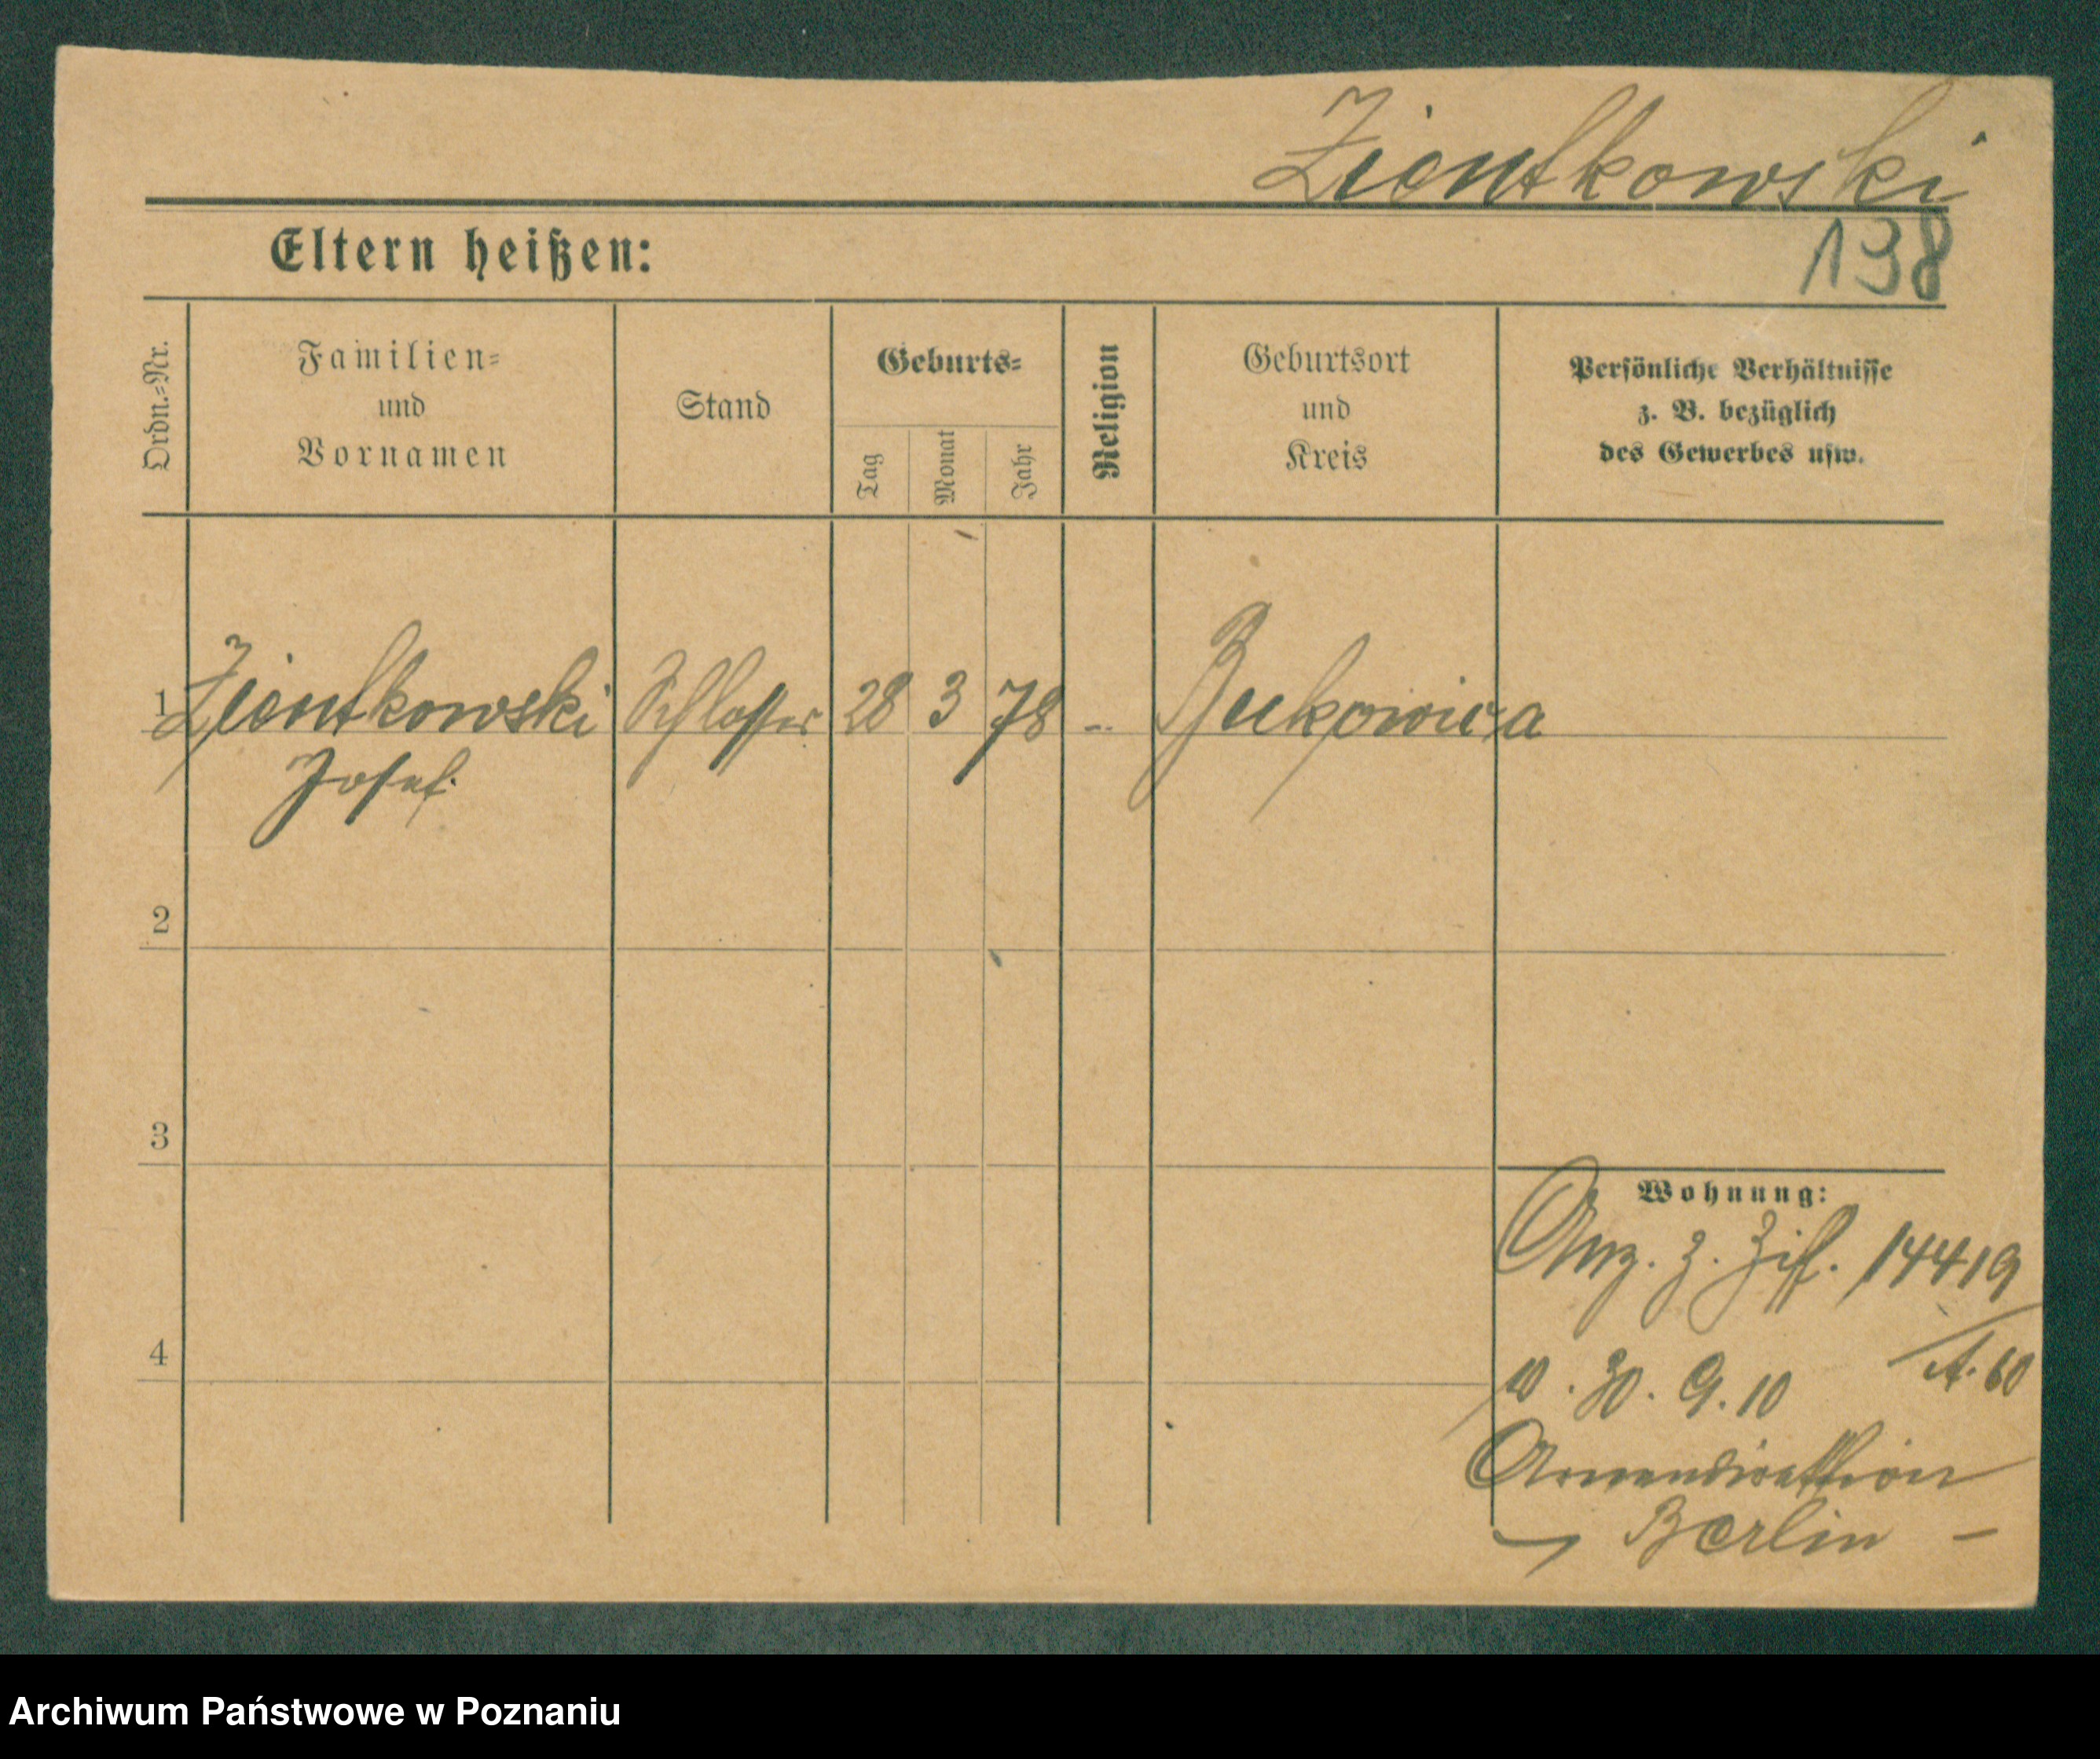 Zientkowski
138
Eltern heißen:
Ordn.=Nr.
Familien=
und
Vornamen
Stand
Geburts=
Tag
Monat
Jahr
Religion
Geburtsort
und
Kreis
Persönliche Verhältnisse
z. B. bezüglich
des Gewerbes usw.
1 Zientkowski Schlosser 28 3 78 - Bukowica
Josef.
2
3
4
Wohnung:
Anz. z. Ziff. 14419
A. 60
v. 30. 9. 10
Armendirektion
Berlin -
Archiwum Państwowe w Poznaniu